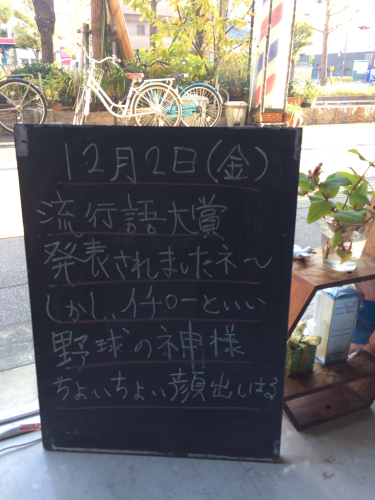 12月2日(金)
流行語大賞
発表されましたネ〜
しかし、イチローといい
野球の神様
ちょいちょい顔出しはる